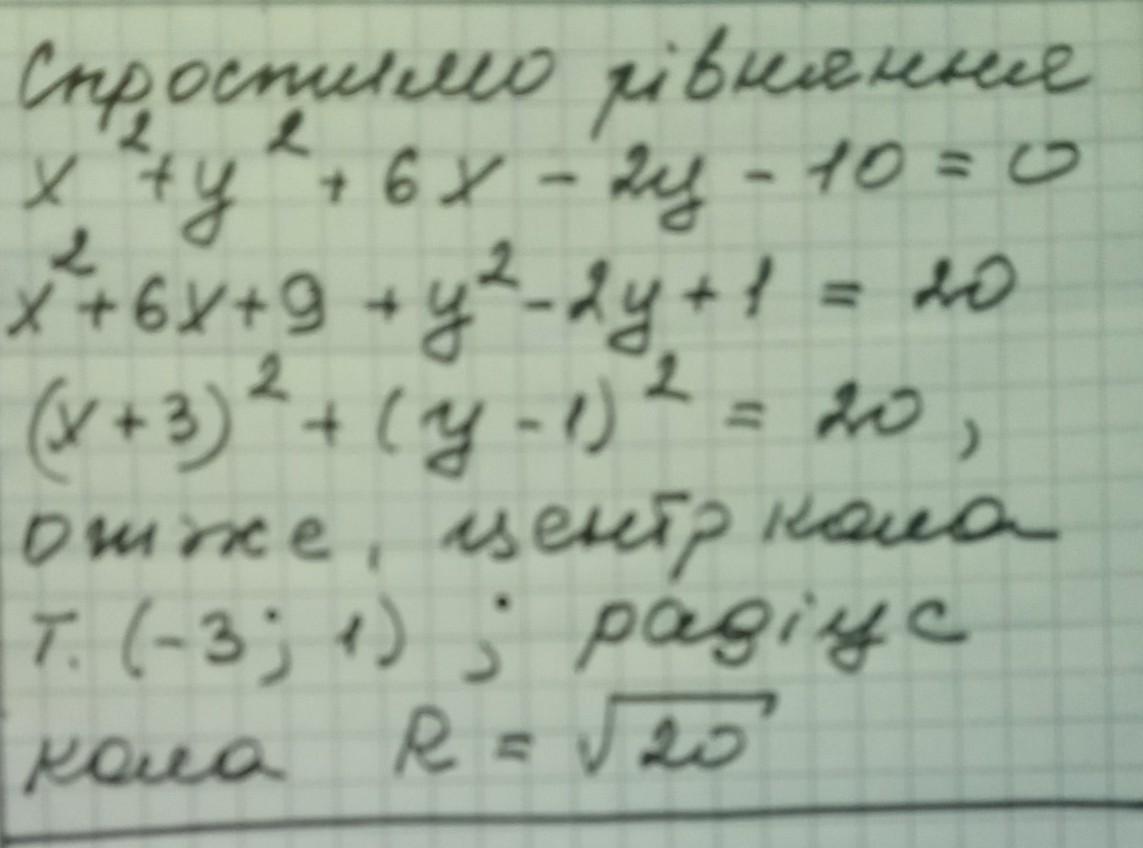 Спростимо рівняння
x² + y² + 6x - 2y - 10 = 0
x² + 6x + 9 + y² - 2y + 1 = 20
(x + 3)² + (y - 1)² = 20,
отже, центр кола
т. (-3; 1) ; радіус
кола R = √20